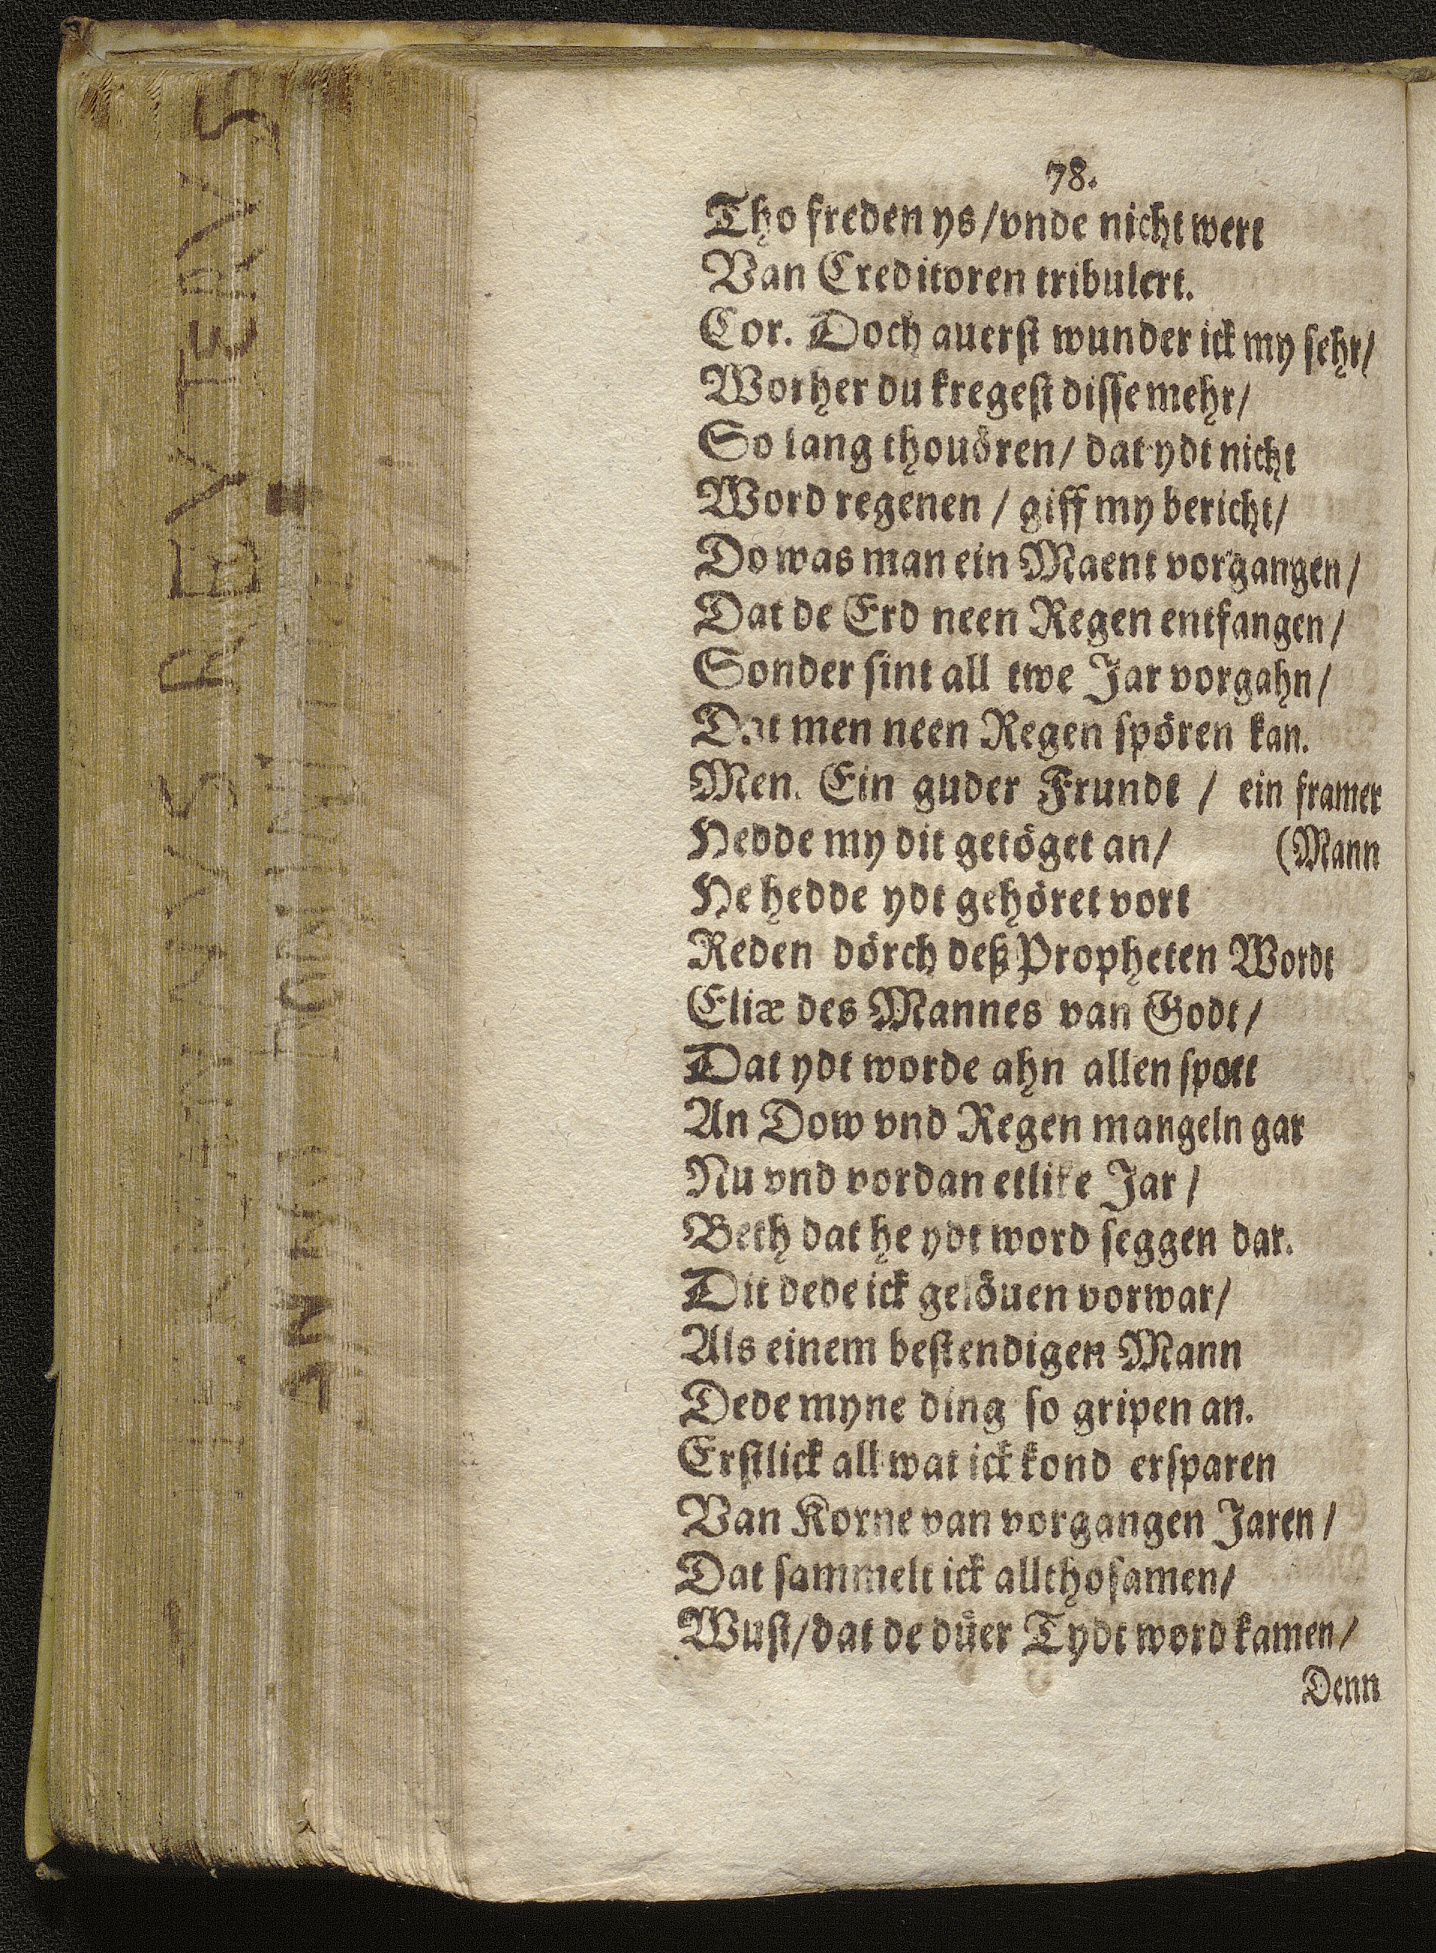 78.
Tho freden ys/vnde nicht wert
Van Creditoren tribulert.
Cor. Doch auerst wunder ick my sehr/
Worher du kregest disse mehr/
So lang thouören/ dat ydt nicht
Word regenen / giff my bericht/
Do was man ein Maent vorgangen/
Dat de Erd neen Regen entfangen/
Sonder sint all twe Jar vorgahn/
Dat men neen Regen spören kan.
Men. Ein guder Frundt / ein framer
Hedde my dit getöget an/ (Mann
He hedde ydt gehöret vort
Reden dörch deß Propheten Wordt
Eliæ des Mannes van Godt/
Dat ydt worde ahn allen spott
An Dow vnd Regen mangeln gar
Nu vnd vordan etlike Jar/
Beth dat he ydt word seggen dar.
Dit dede ick gelöuen vorwar/
Als einem bestendigen Mann
Dede myne ding so gripen an.
Erstlick all wat ick kond ersparen
Van Korne van vorgangen Jaren/
Dat sammelt ick allthosamen/
Wust/dat de düer Tydt word kamen/
Denn